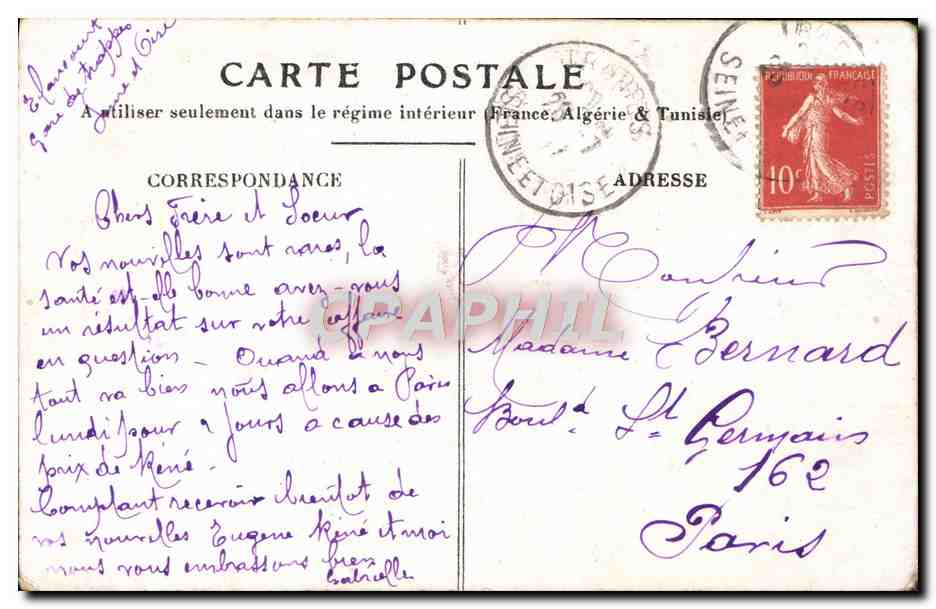 Elancourt
Gare de trappes
Seine et Oise
CARTE POSTALE
A utiliser seulement dans le régime intérieur (France, Algérie & Tunisie)
CORRESPONDANCE
Chers Frère et Soeur
Vos nouvelles sont rares, la
santé est-elle bonne avez-vous
un résultat sur votre affaire
en question - Quand à nous
tout va bien nous allons a Paris
lundi pour 2 jours a cause des
prix de Réné.
Comptant recevoir bientot de
vos nouvelles Eugene Réné et moi
nous vous embrassons bien
Gabrielle
ADRESSE
Monsieur
Madame Bernard
Boul.d St Germains
162
Paris
TRAPPES
SEINE ET OISE
SEINE
REPUBLIQUE FRANÇAISE
10c
POSTES
CPAPHIL